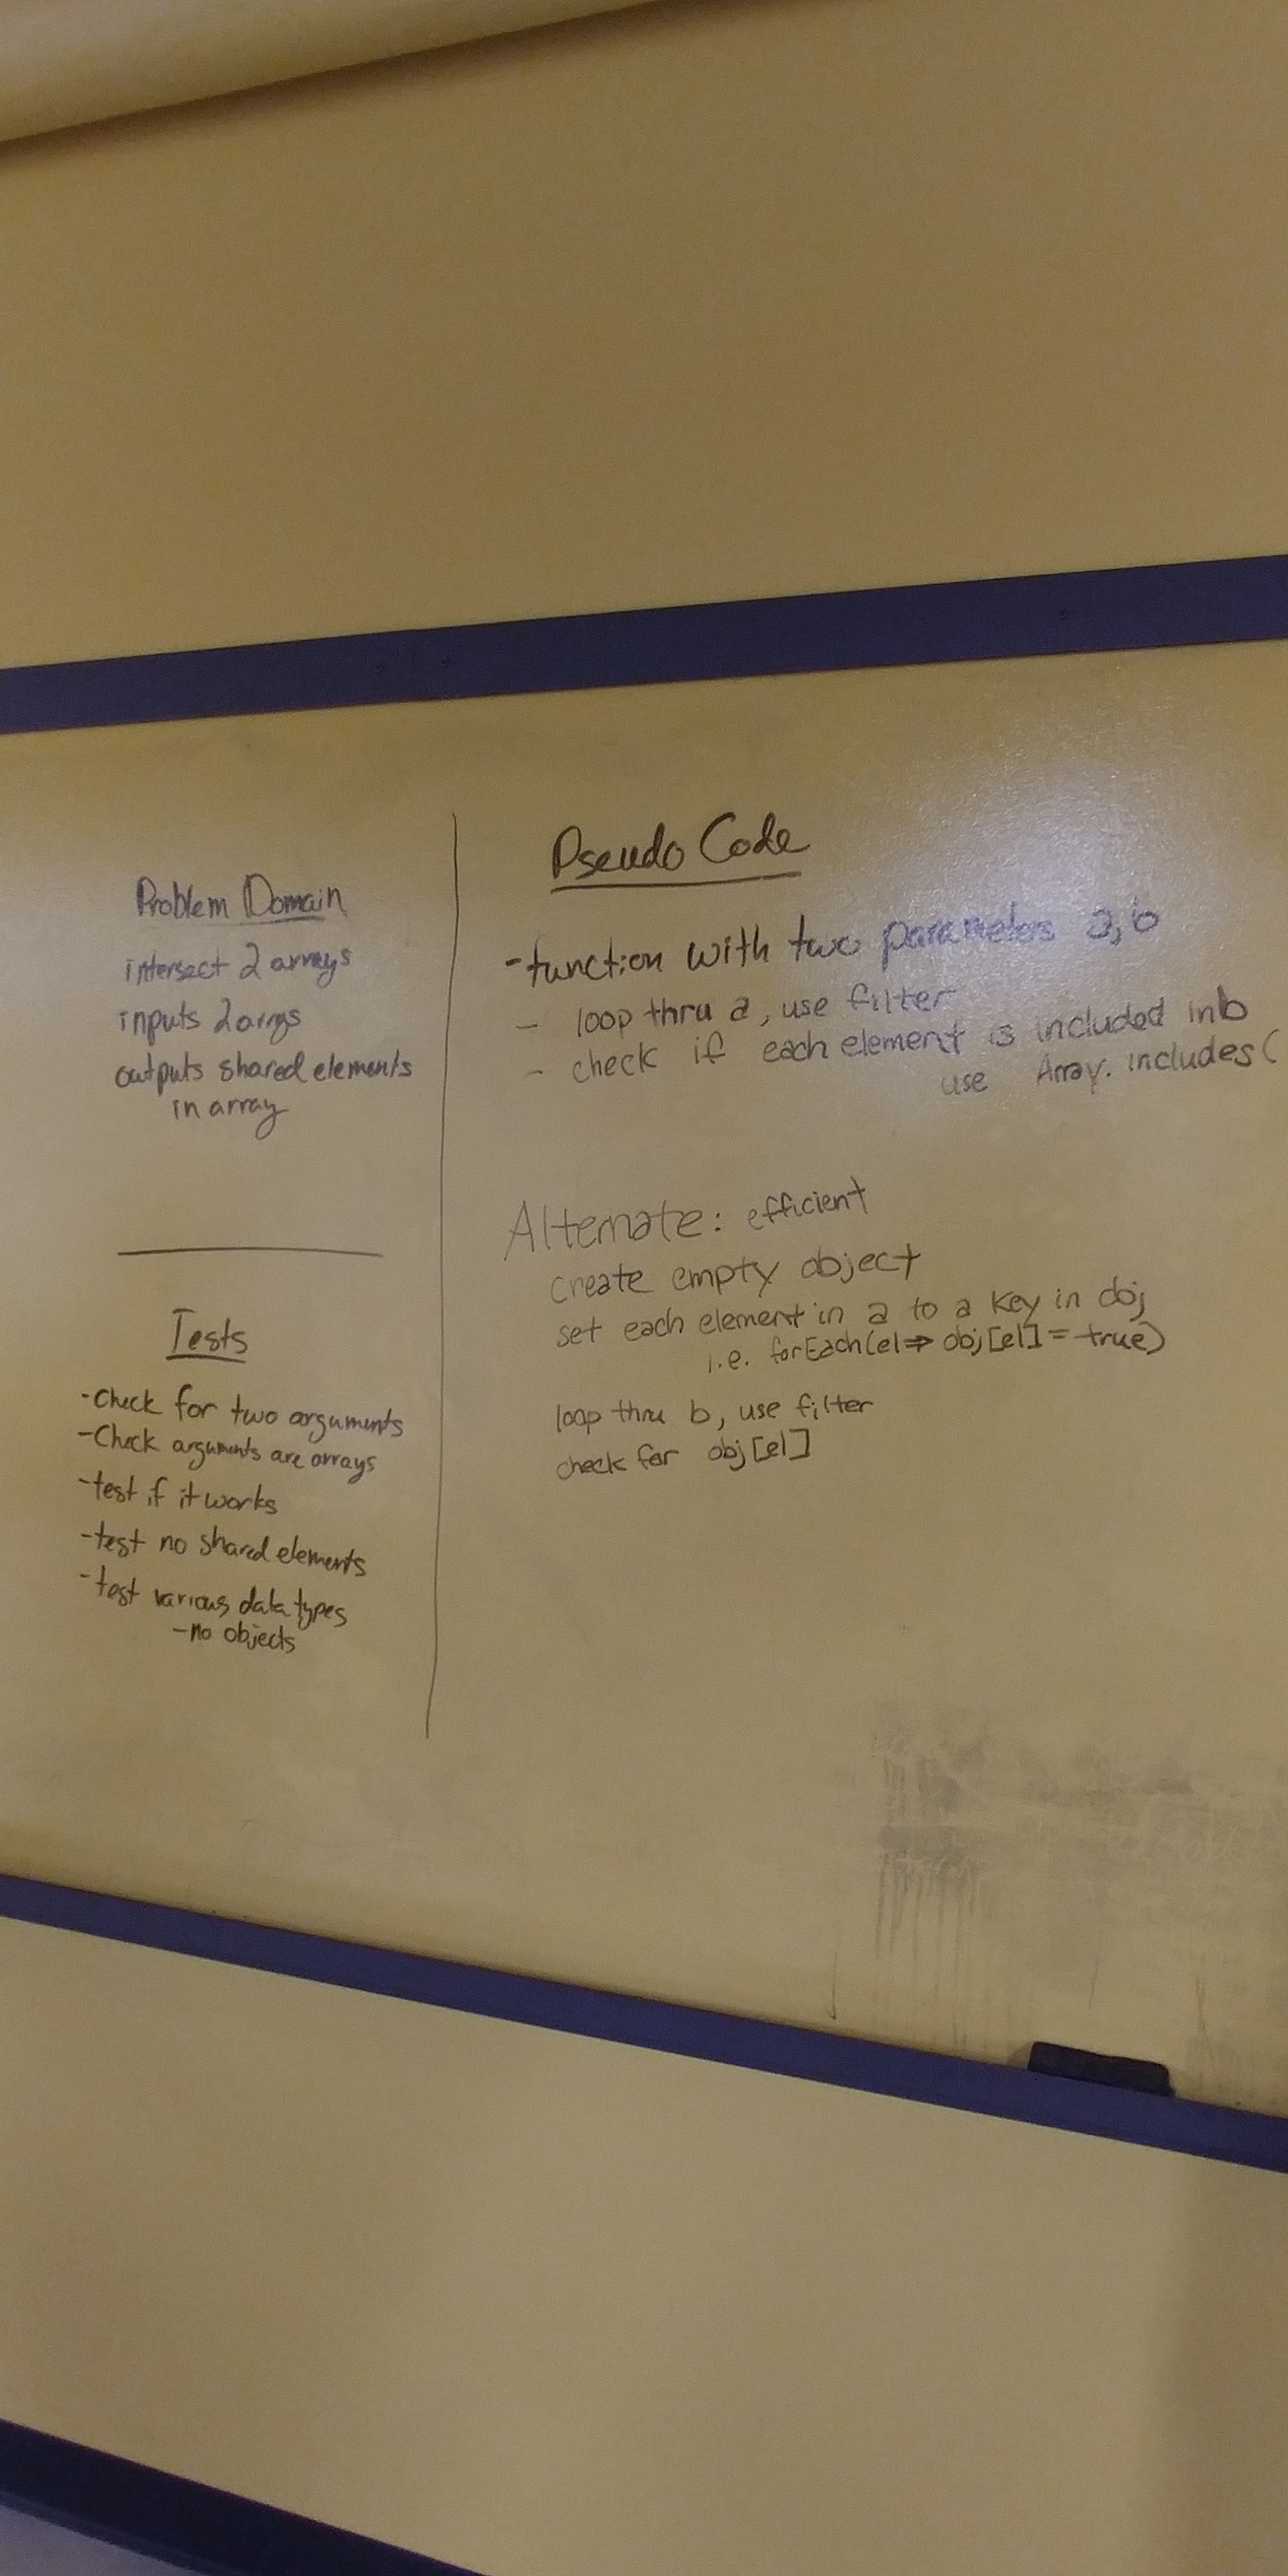 Problem Domain
intersect 2 arrays
inputs 2 arrys
outputs shared elements
in array
Tests
-Check for two arguments
-Check arguments are arrays
-test if it works
-test no shared elements
-test various data types
-no objects
Pseudo Code
-function with two parameters a,b
- loop thru a, use filter
- check if each element is included in b
use Array.includes(
Alternate: efficient
create empty object
set each element in a to a key in obj
i.e. forEach(el => obj[el] = true)
loop thru b, use filter
check for obj[el]